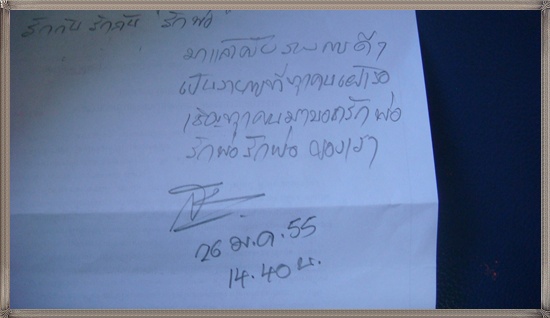 รักกัน รักกัน รักพ่อ
มาแล้วครับ รายการดีๆ
เป็นรายการที่ทุกคนเฝ้ารอ
เชิญทุกคนมาบอกรักพ่อ
รักพ่อ รักพ่อ ของเรา
26 ม.ค. 55
14.40 น.